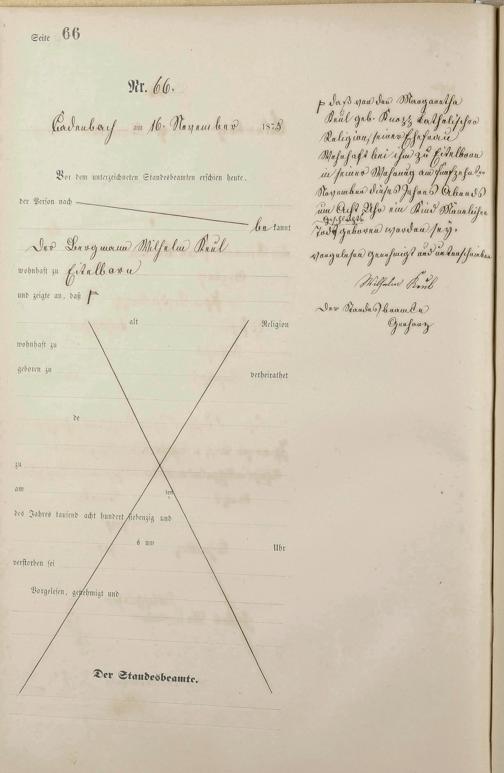 Seite 66
Nr. 66.
Cadenbach am 16. November 1878
Vor dem unterzeichneten Standesbeamten erschien heute,
der Person nach
be kannt
der Bergmann Wilhelm Keul
wohnhaft zu Eitelborn
und zeigte an, daß
alt Religion
wohnhaft zu
geboren zu
verheirathet
de
zu
am ten
des Jahres tausend acht hundert siebenzig und
um Uhr
verstorben sei
Vorgelesen, genehmigt und
Der Standesbeamte.
daß von der Margaretha
Keul geb. Knopp katholischer
Religion, seiner Ehefrau
Wohnhaft bei ihm zu Eitelborn
in seiner Wohnung am fünfzehnten
November dieses Jahres Abends
um Acht Uhr ein Kind Männlichen
Geschlechts
Todt geboren worden sey.
vorgelesen genehmigt und unterschrieben
Wilhelm Keul
Der Standesbeamte